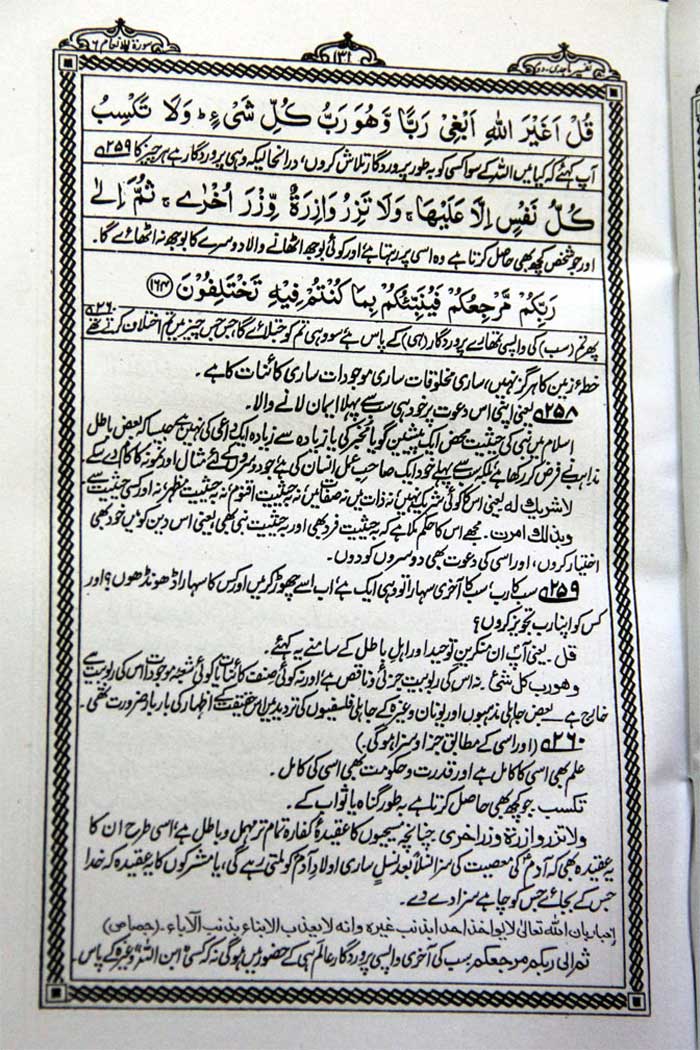 سورة الانعام ٦
١٣١
تفسیر ماجدی۔ دوم
قُلْ اَغَيْرَ اللهِ اَبْغِىْ رَبًّا وَّهُوَ رَبُّ كُلِّ شَىْءٍ ؕ وَلَا تَكْسِبُ
آپ کہئے کہ کیا میں اللہ کے سوا کسی کو بہ طور پروردگار تلاش کروں، درانحالیکہ وہی پروردگار ہے ہر چیز کا ۲۵۹
كُلُّ نَفْسٍ اِلَّا عَلَيْهَا ۚ وَلَا تَزِرُ وَازِرَةٌ وِّزْرَ اُخْرٰى ۚ ثُمَّ اِلٰى
اور جو شخص کچھ بھی حاصل کرتا ہے وہ اسی پر رہتا ہے اور کوئی بوجھ اٹھانے والا دوسرے کا بوجھ نہ اٹھائے گا۔
رَبِّكُمْ مَّرْجِعُكُمْ فَيُنَبِّئُكُمْ بِمَا كُنْتُمْ فِيْهِ تَخْتَلِفُوْنَ ﴿۱۶۴﴾
پھر تم (سب) کی واپسی تمہارے پروردگار (ہی) کے پاس ہے سو وہی تم کو جتلائے گا جس جس چیز میں تم اختلاف کرتے تھے ۲۶۰
خطۂ زمین کا ہرگز نہیں، ساری مخلوقات ساری موجودات ساری کائنات کا ہے۔
۲۵۸ یعنی اپنی اس دعوت پر خود ہی سب سے پہلا ایمان لانے والا۔
اسلام میں نبی کی حیثیت محض ایک پیشین گو یا مخبر کی یا زیادہ سے زیادہ ایک داعی کی نہیں ہے جیسا کہ بعض باطل
مذاہب نے فرض کر رکھا ہے بلکہ سب سے پہلے خود ایک صاحبِ عمل انسان کی ہے جو دوسروں کے لئے مثال اور نمونہ کا کام دے سکے۔
لاشریك له یعنی اس کا کوئی شریک نہیں، نہ ذات میں نہ صفات میں، نہ بہ حیثیت اقنوم، نہ بہ حیثیت مظہر، نہ اور کسی حیثیت سے۔
وبذلك امرت۔ مجھے اس کا حکم ملا ہے کہ بہ حیثیت فرد بھی اور بہ حیثیت نبی بھی، یعنی اس دین کو میں خود بھی
اختیار کروں، اور اسی کی دعوت بھی دوسروں کو دوں۔
۲۵۹ سب کا رب، سب کا آخری سہارا تو وہی ایک ہے، اب اسے چھوڑ کر میں اور کس کا سہارا ڈھونڈھوں؟ اور
کس کو اپنا رب تجویز کروں؟
قل۔ یعنی آپ ان منکرینِ توحید اور اہلِ باطل کے سامنے یہ کہئے۔
وھو رب کل شئ۔ نہ اس کی ربوبیت جزئی و ناقص ہے اور نہ کوئی صنف کائنات یا کوئی شعبۂ موجودات اس کی ربوبیت سے
خارج ہے۔ بعض جاہلی مذہبوں اور یونان وغیرہ کے جاہلی فلسفیوں کی تردید میں اس حقیقت کے اظہار کی بار بار ضرورت تھی۔
۲۶۰ (اور اسی کے مطابق جزا و سزا ہوگی۔)
علم بھی اسی کا کامل ہے اور قدرت و حکومت بھی اسی کی کامل۔
تکسب۔ جو کچھ بھی حاصل کرتا ہے بہ طور گناہ یا ثواب کے۔
ولا تزر وازرۃ وزر اخری۔ چنانچہ مسیحیوں کا عقیدۂ کفارہ تمام تر مہمل و باطل ہے، اسی طرح ان کا
یہ عقیدہ بھی کہ آدمؑ کی معصیت کی سزا نسلاً بعد نسل ساری اولادِ آدمؑ کو ملتی رہے گی، یا مشرکوں کا یہ عقیدہ کہ خدا
جس کے بجائے جس کو چاہے سزا دے دے۔
اخبار بان الله تعالیٰ لایواخذ احدا بذنب غیرہ وانه لایعذب الابناء بذنب الآباء۔ (جصاص)
ثم الی ربکم مرجعکم۔ سب کی آخری واپسی پروردگارِ عالم ہی کے حضور میں ہوگی نہ کہ کسی "ابن اللہ" وغیرہ کے پاس۔